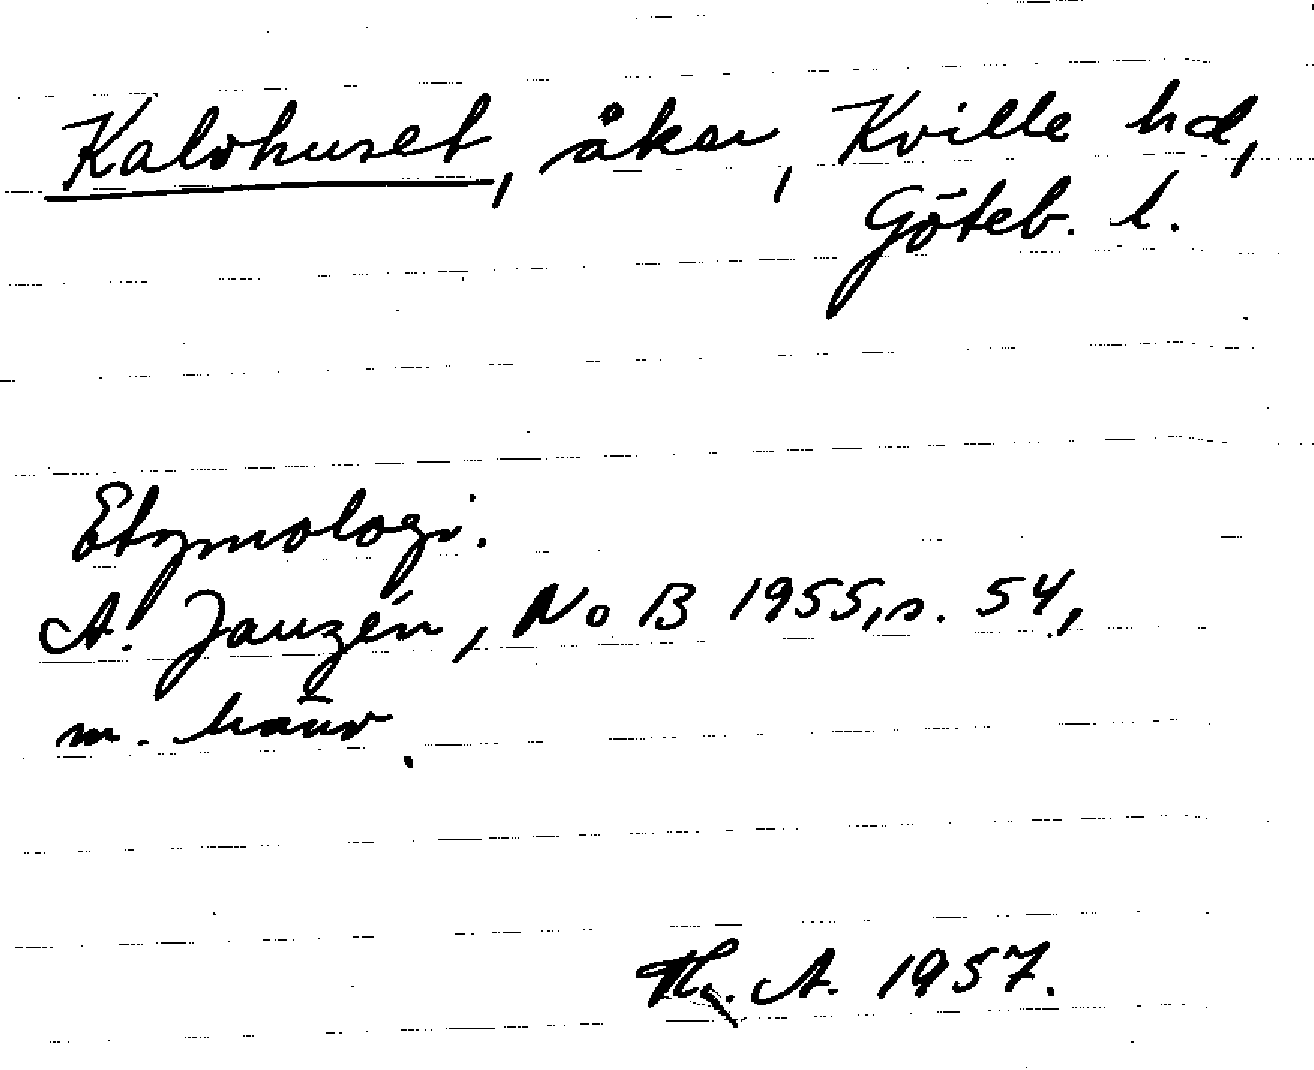 Kalvhuset, åker, Kville hd,
Göteb. l.
Etymologi.
A. Janzén, NoB 1955, s. 54,
m. hänv.
Th. A. 1957.